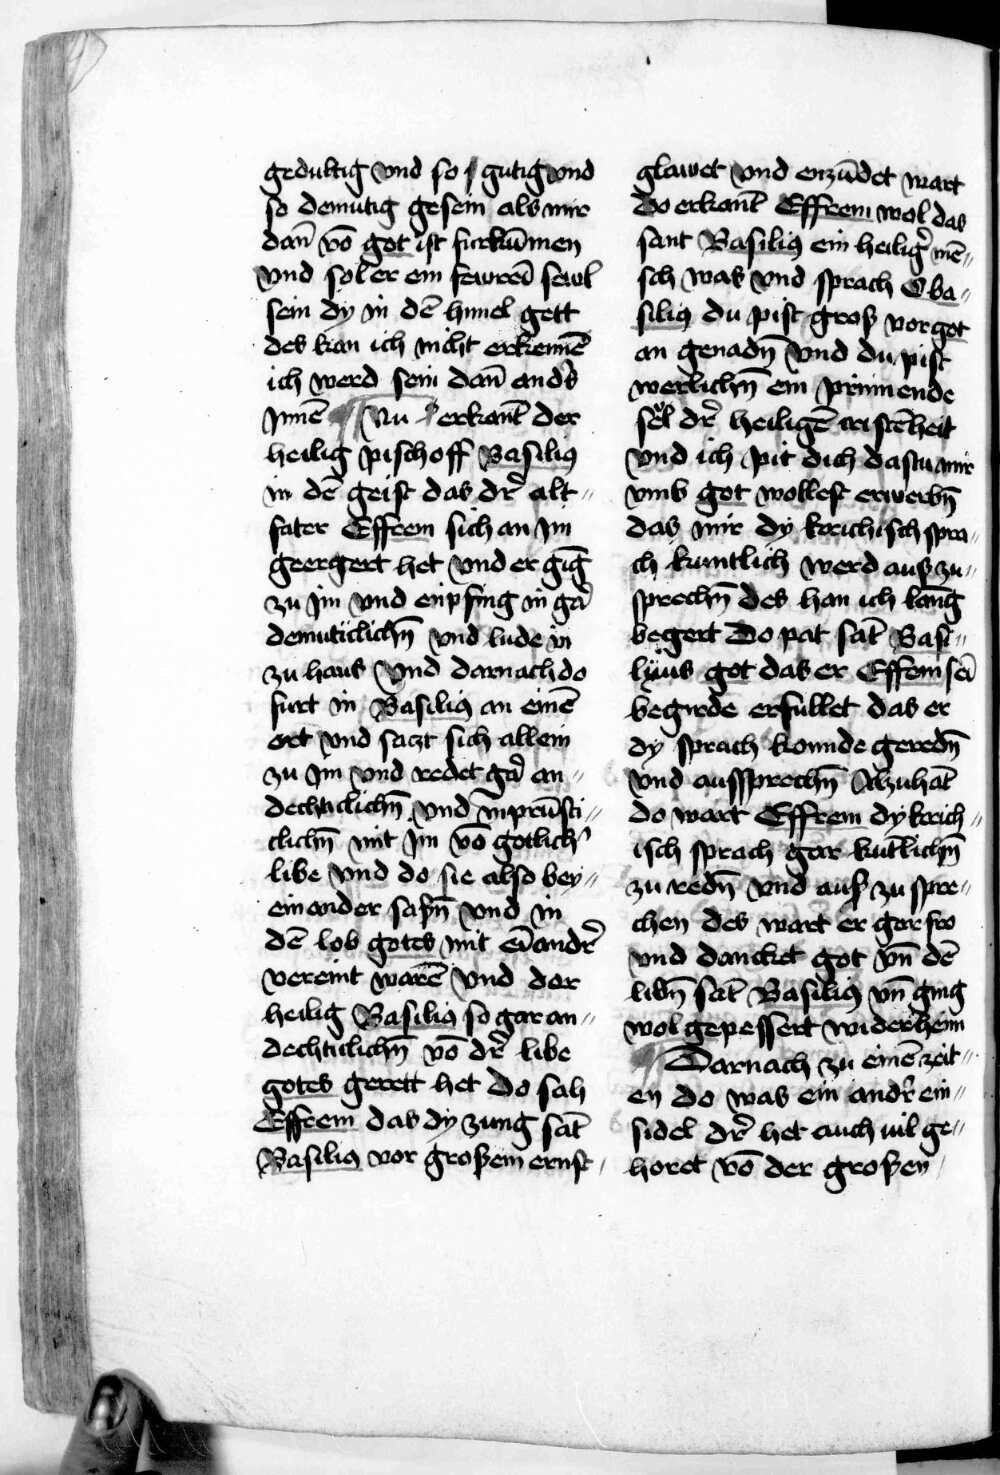 gedultig vnd so gutig vnd
so demutig gesein als mir
dan̄ vō got ist furkūmen
vnd sol er ein fewreī sewl
sein dy in dē himel gett
des kan ich nicht erkennē
ich werd sein dan̄ anders
Jnnē Nu erkant der
heilig pischoff Basilius
in dē geist das dr̄ alt〃
fater Effrem sich an Jm
geergert het vnd er gīg
zu Jm vnd enpfing in gar
demuticlichn̄ vnd lude in
zu haus vnd darnach do
furt in Basilius an einē
ort vnd saczt sich allein
zu Jm vnd redet gar an〃
dechticlichn̄ vnd inprūsti〃
clichn̄ mit Jm vō gotlicher
libe vnd do sie also bey〃
einander saßn̄ vnd in
dē lob gotes mit eīandr̄
vereint warē vnd der
heilig Basilius so gar an〃
dechticlichn̄ vō dr̄ libe
gotes gerett het Do sah
Effrem das dy zung sāt
Basilius vor großem ernst
glawet vnd enzūdet wart
do erkant Effrem wol das
sant Basilius ein heiliḡr mē〃
sch was vnd sprach O ba〃
silius du pist groß vor got
an genadn̄ vnd du pist
werlichn̄ ein prinnende
sewl dr̄ heiligē cristēheit
vnd ich pit dich dastu mir
vmb got wollest erwerbn̄
das mir dy krichisch spra〃
ch kuntlich werd auß zu〃
sprechn̄ des han ich lang
begert Do pat sāt Basi〃
lyus got das er Effrem sei
begirde erfullet das er
dy sprach konnde geredn̄
vnd aussprechn̄ Alzuhāt
do wart Effrem dy krich〃
isch sprach gar kūtlichn̄
zu redn̄ vnd auß zu spre〃
chen des wart er gar fro
vnd dancket got vn̄ dē
libn̄ sāt Basilius vn̄ ging
wol gepessert wider heim
Darnach zu einē zeit〃
en do was ein andr̄ ein〃
sidel dr̄ het auch vil ge〃
horet vō der großen